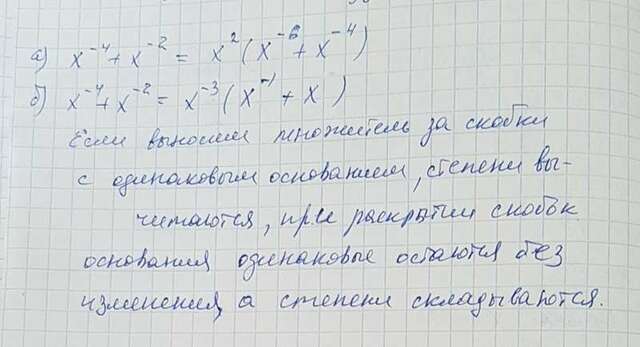 а) x⁻⁴ + x⁻² = x²(x⁻⁶ + x⁻⁴)
б) x⁻⁴ + x⁻² = x⁻³(x⁻¹ + x)
Если выносим множитель за скобки
с одинаковым основанием, степени вы-
читаются, при раскрытии скобок
основания одинаковые остаются без
изменения, а степени складываются.